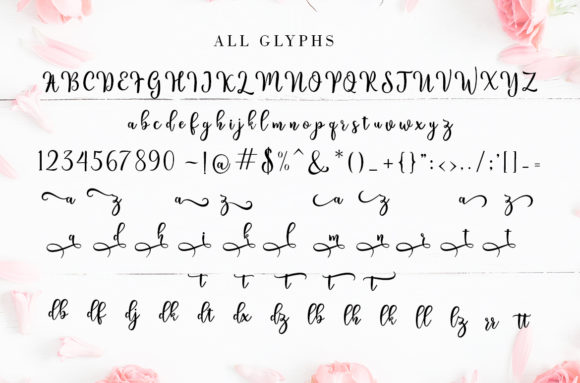 ALL GLYPHS
ABCDEFGHIJKLMNOPQRSTUVWXYZ
abcdefghijklmnopqrstuvwxyz
1234567890 ~!@#$%^&*()_+{}":<>../;'[]-=
a z a z a z a z
a d h i k l m n r t t
t t t t t
db df dj dk dt dx dz lb lh lk ll lz rr tt